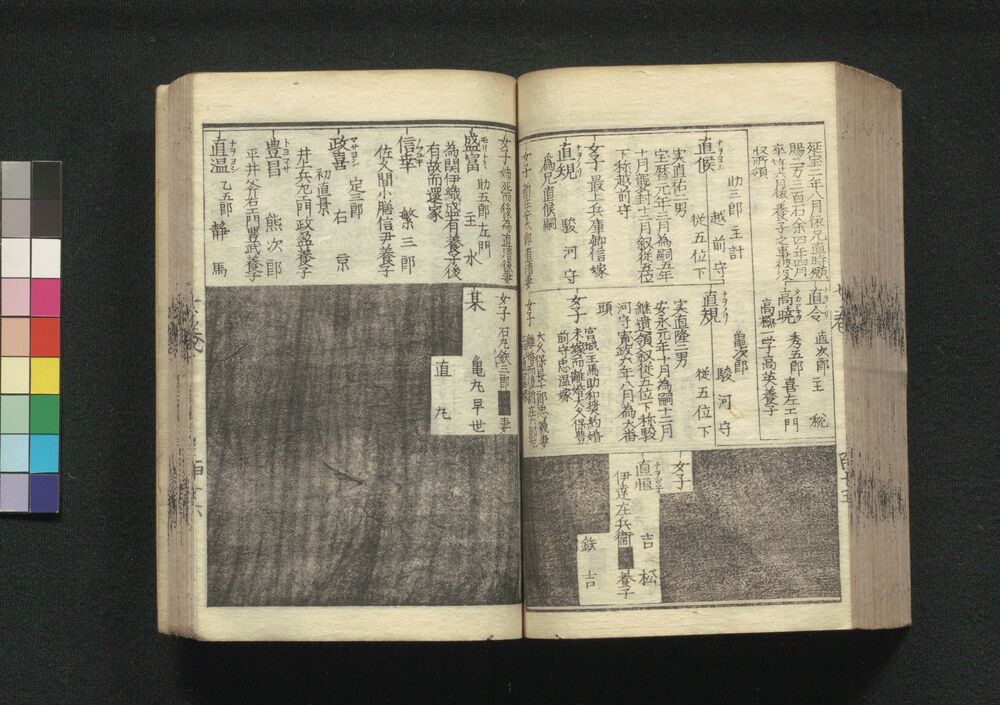 延宝二年八月依兄直時願
賜二万三百石余四年四月
収所領
直候
ナヲヨシ
助三郎 主計
越前守
従五位下
実直祐二男
宝暦元年三月為嗣五年
十月襲封十二月叙従五位
下称越前守
女子 最上兵庫卿信嫁
直規
ナヲノリ
駿河守
為兄直候嗣
直令
直次郎 主税
高暁
秀五郎 喜左エ門
高極一学高英養子
直規
ナヲノリ
亀次郎
駿河守
従五位下
実直隆二男
安永元年十月為嗣十二月
継遺領叙従五位下称駿
河守寛政六年八月為大番
頭
女子
宮城主馬助和奨約婚
未嫁而離婚大久保豊
前守忠温嫁
女子
直恒
ナヲツ子
吉松
伊達左兵衛
養子
鉄吉
女子 姉死而後為直清後妻
盛富
モリトミ
助五郎 左門
主水
為関伊織盛有養子後
有故而還家
信幸
ノブユキ
繁三郎
佐久間小膳信尹養子
政喜
マサヨシ
定三郎
右京
初直景
井上兵左エ門政盈養子
豊昌
トヨマサ
熊次郎
平井谷右エ門豊武養子
直温
ナヲヨシ
乙五郎
静馬
女子 石丸鉄三郎
妻
某
亀丸早世
直丸
百十五
百十六